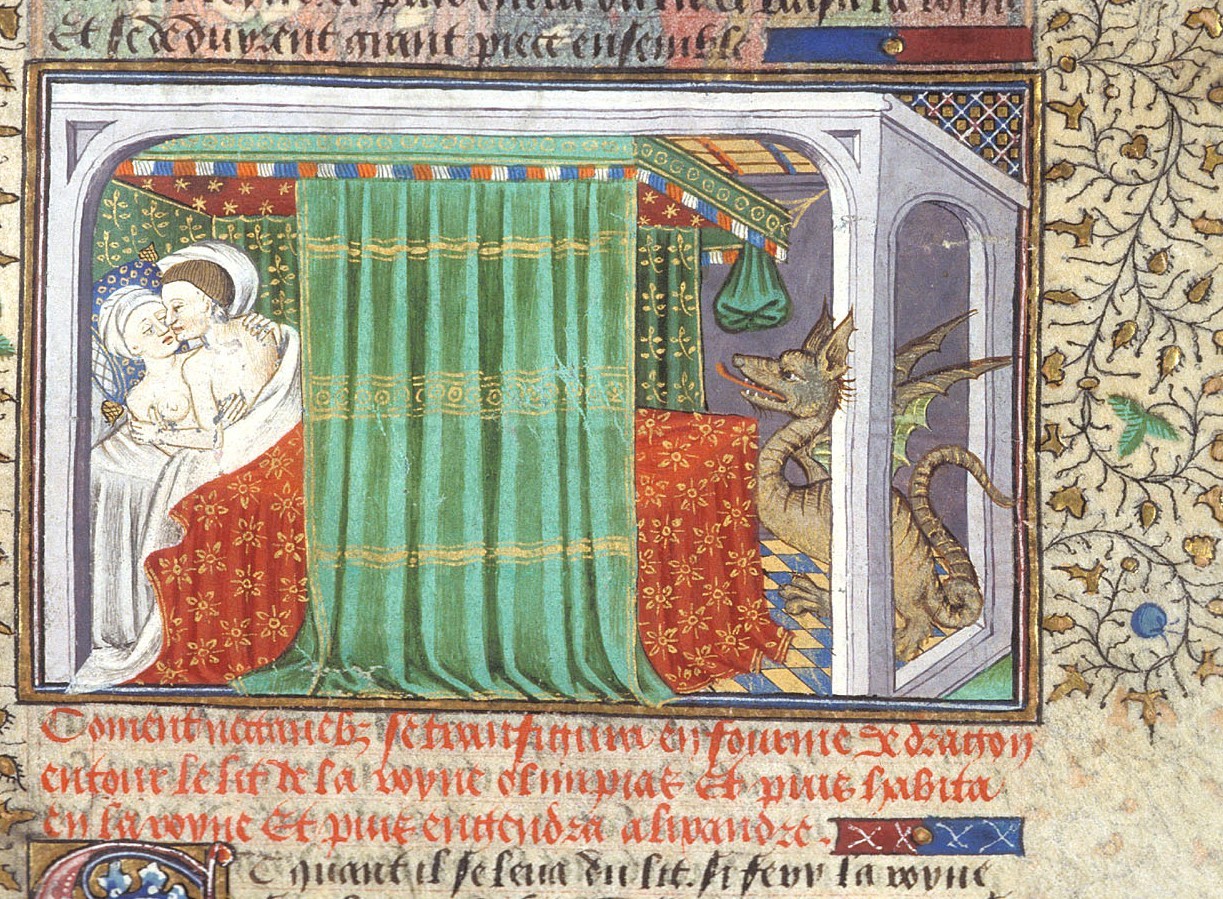 Et se deduyrent grant piece ensemble
Coment nectanebz se transfigura en fourme de dragon
entour le lit de la royne olimpias Et puis habita
en la royne Et puis engendra alixandre.
Et quant il se leua du lit. si feru la royne